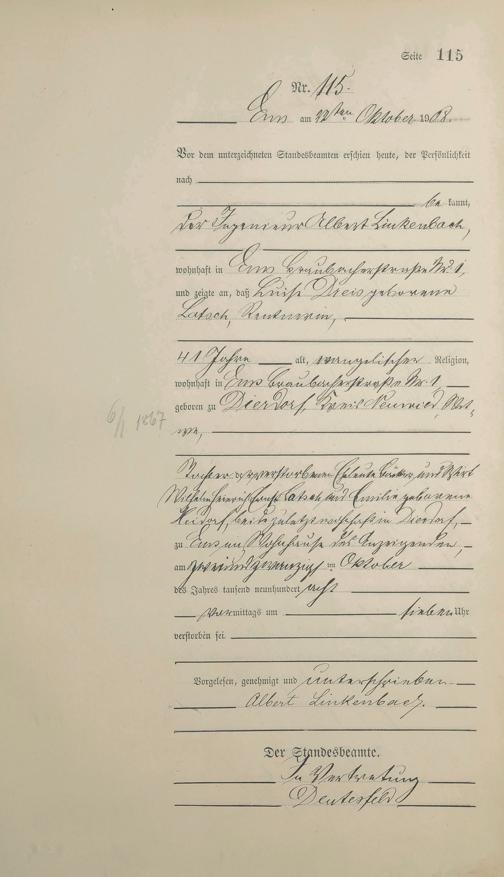 Seite 115
Nr. 115.
Ems am 22ten Oktober 1908.
Vor dem unterzeichneten Standesbeamten erschien heute, der Persönlichkeit
nach
bekannt,
der Ingenieur Albert Linkenbach,
wohnhaft in Ems Braubacherstraße Nr. 1,
und zeigte an, daß Luise Dreis geborene
Latsch, Rentnerin,
41 Jahre alt, evangelischer Religion,
wohnhaft in Ems Braubacherstraße Nr. 1,
geboren zu Dierdorf, Kreis Neuwied, Wit-
we,
6/1 1867
Tochter der verstorbenen Eheleute und Wirt
Wilhelm Latsch und Emilie geborene
beide zuletzt wohnhaft in Dierdorf,
zu Ems im Wohnhause des Anzeigenden,
am zweiundzwanzigsten Oktober
des Jahres tausend neunhundert acht
Vormittags um sieben Uhr
verstorben sei
Vorgelesen, genehmigt und unterschrieben
Albert Linkenbach.
Der Standesbeamte.
In Vertretung